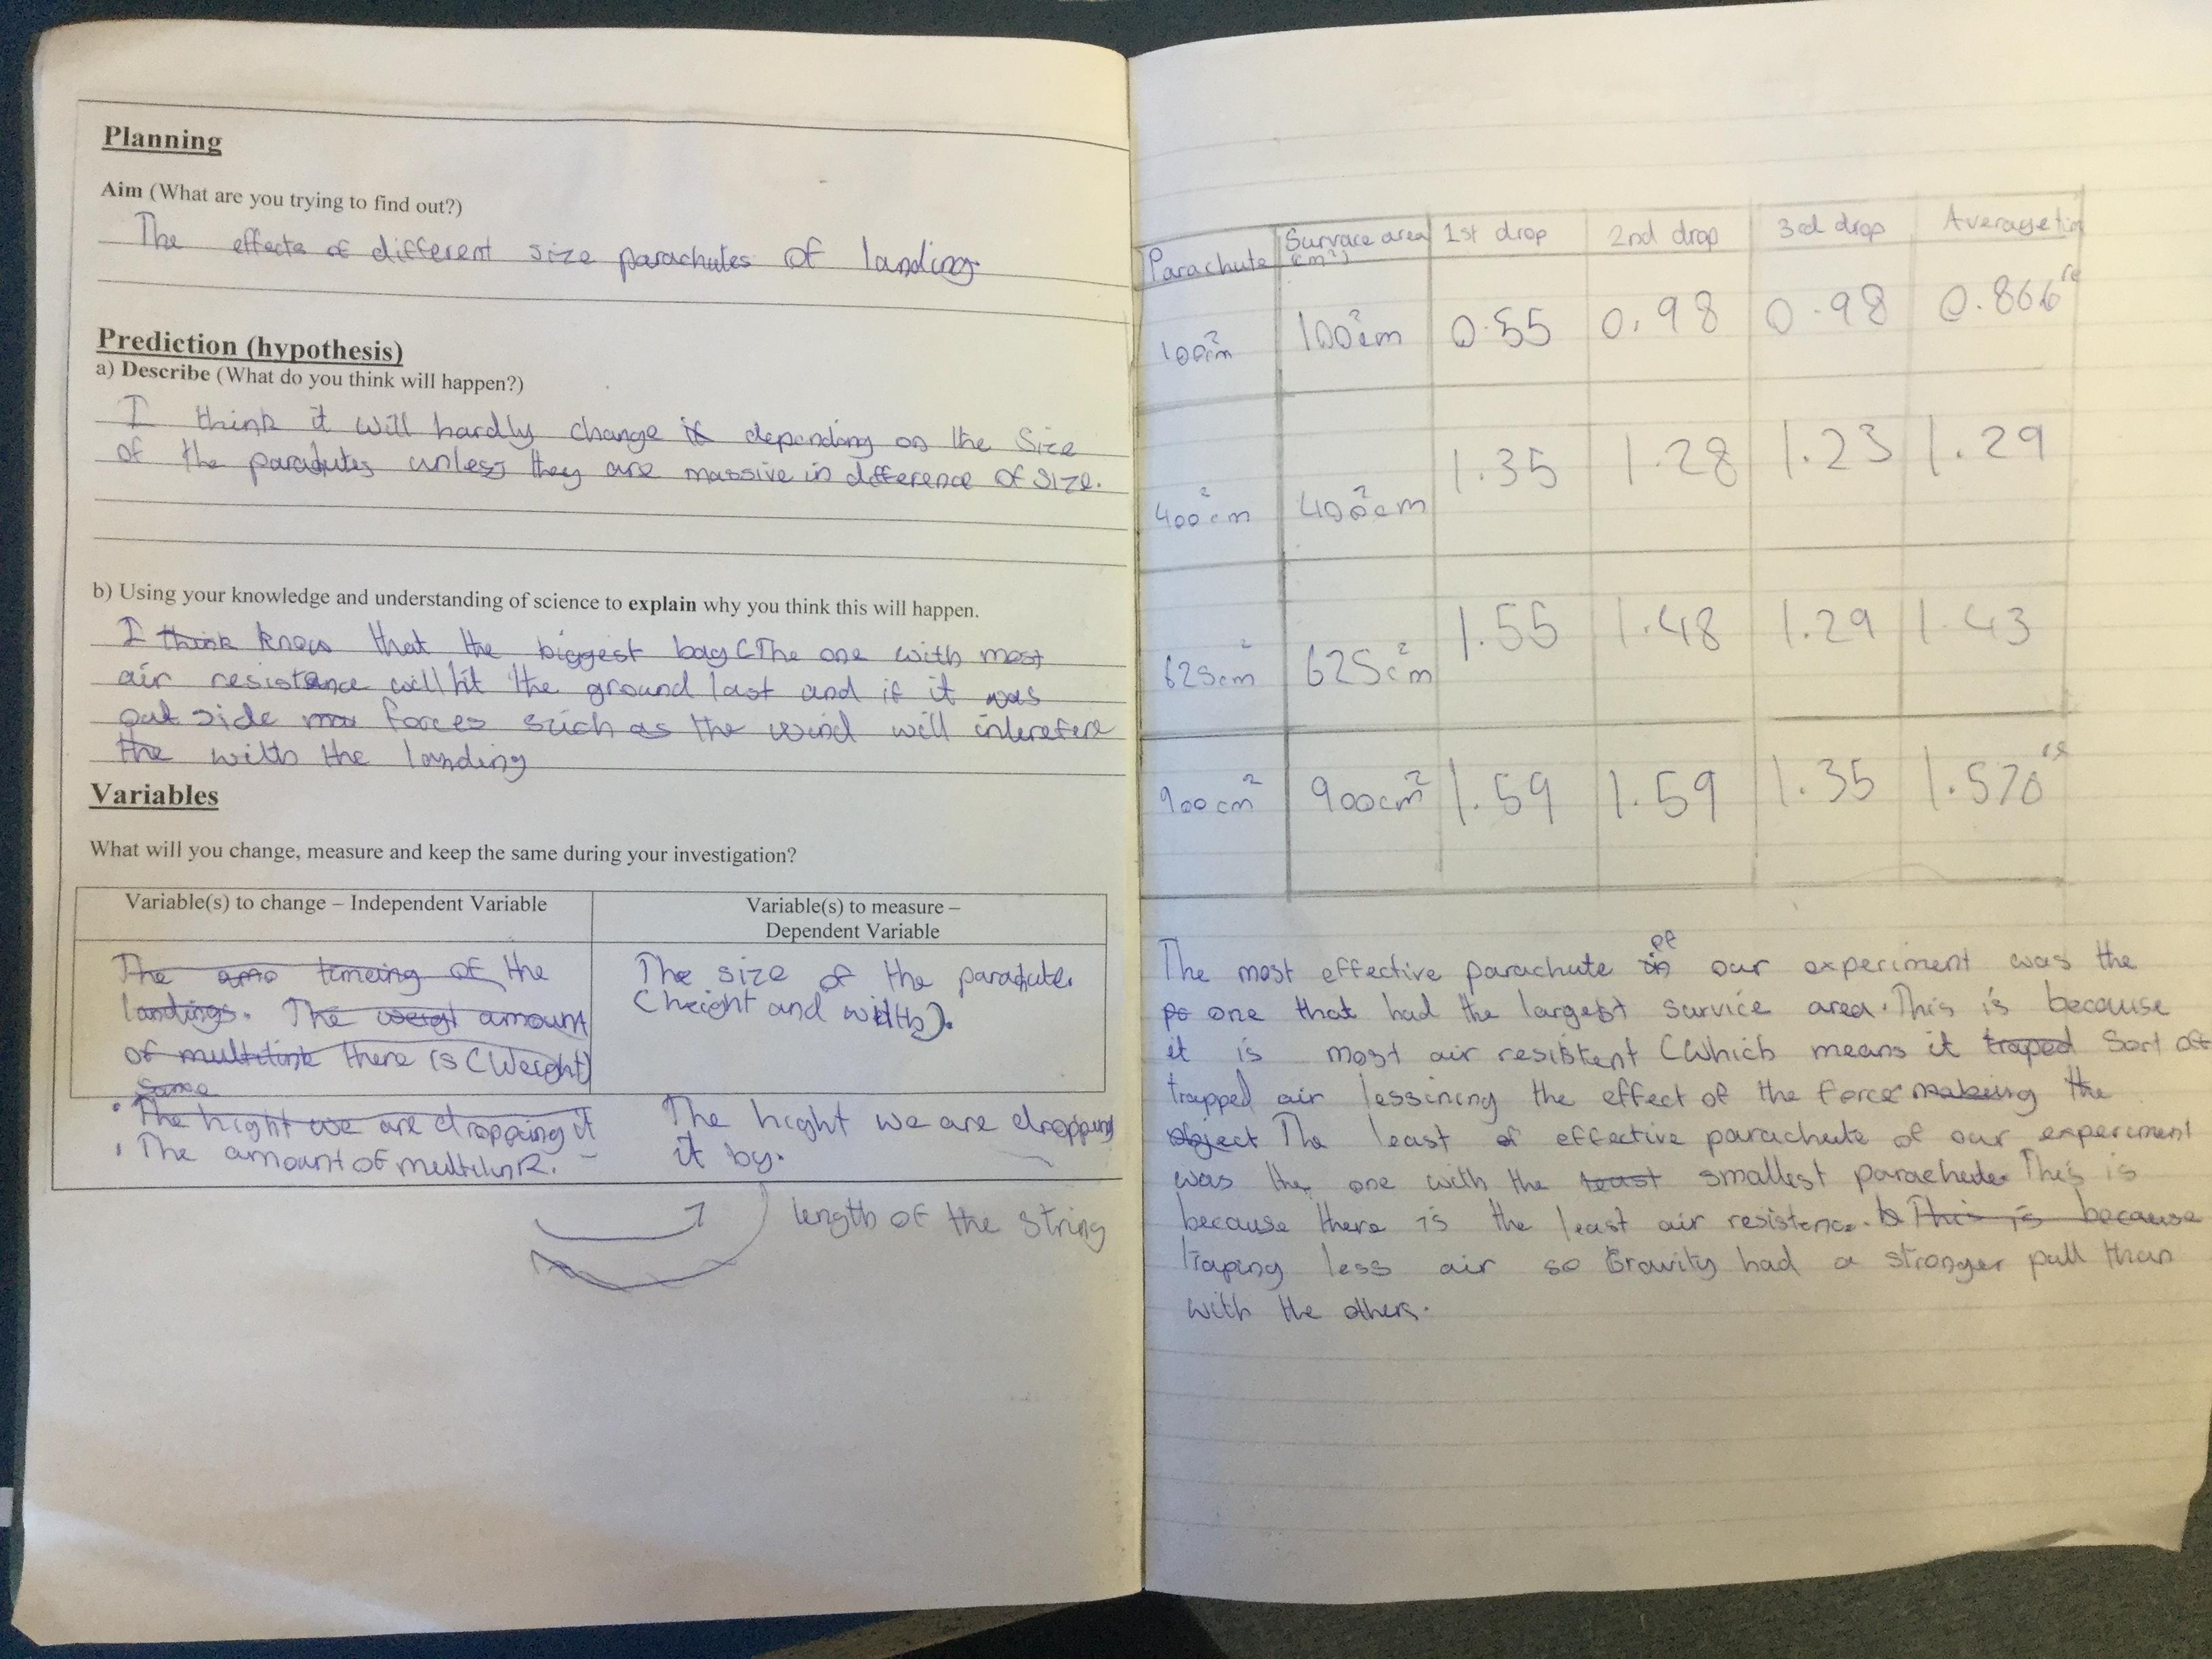 Planning
Aim (What are you trying to find out?)
The effects of different size parachutes of landing.
Prediction (hypothesis)
a) Describe (What do you think will happen?)
I think it will hardly change if depending on the Size
of the parachutes unless they are massive in difference of size.
b) Using your knowledge and understanding of science to explain why you think this will happen.
I think know that the biggest bag (The one with most
air resistance will hit the ground last and if it was
out side forces such as the wind will interefere
the with the landing
Variables
What will you change, measure and keep the same during your investigation?
Variable(s) to change – Independent Variable
The amo timeing of the
landings. The weigt amount
of multilink there is (Weight)
Variable(s) to measure –
Dependent Variable
The size of the parachute.
(height and width).
Same
• The hight we are dropping it
• The amount of multilink.
The hight we are dropping
it by.
length of the string
Parachute Survace area (cm²) 1st drop 2nd drop 3rd drop Average tim
100²cm 100²cm 0.55 0.98 0.98 0.866 re
400²cm 400²cm 1.35 1.28 1.23 1.29
625cm² 625cm² 1.55 1.48 1.29 1.43
900cm² 900cm² 1.59 1.59 1.35 1.570 re
The most effective parachute in of our experiment was the
po one that had the largest survice area. This is because
it is most air resistent (Which means it traped Sort off
trapped air lessining the effect of the force making the
object The least of effective parachute of our experiment
was the one with the least smallest parachute. This is
because there is the least air resistence. This is because
Traping less air so Gravity had a stronger pull than
with the others.